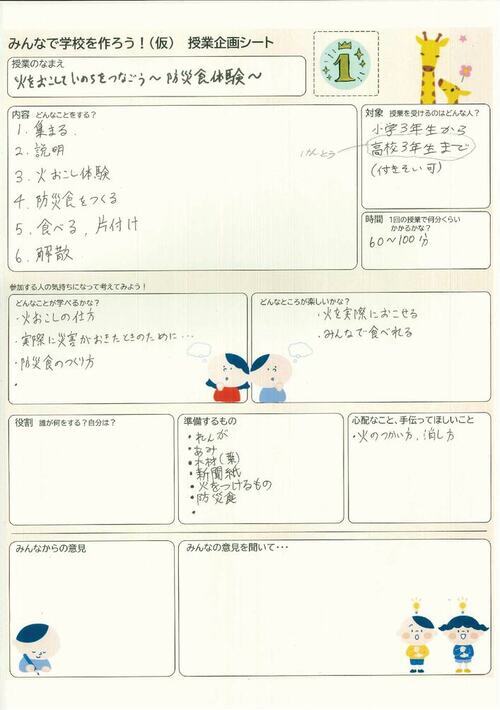 みんなで学校を作ろう!(仮) 授業企画シート
授業のなまえ
火をおこしていのちをつなごう〜防災食体験〜
1
内容 どんなことをする?
1. 集まる.
2. 説明
3. 火おこし体験
4. 防災食をつくる
5. 食べる, 片付け
6. 解散
対象 授業を受けるのはどんな人?
小学3年生から
高校3年生まで
けんとう
(付きそい可)
時間 1回の授業で何分くらい
かかるかな?
60〜100分
参加する人の気持ちになって考えてみよう!
どんなことが学べるかな?
・火おこしの仕方
・実際に災害がおきたときのために…
・防災食のつくり方
・
どんなところが楽しいかな?
・火を実際におこせる
・みんなで食べれる
役割 誰が何をする?自分は?
準備するもの
・れんが
・あみ
・木材(薪)
・新聞紙
・火をつけるもの
・防災食
・
心配なこと、手伝ってほしいこと
・火のつかい方, 消し方
みんなからの意見
みんなの意見を聞いて・・・